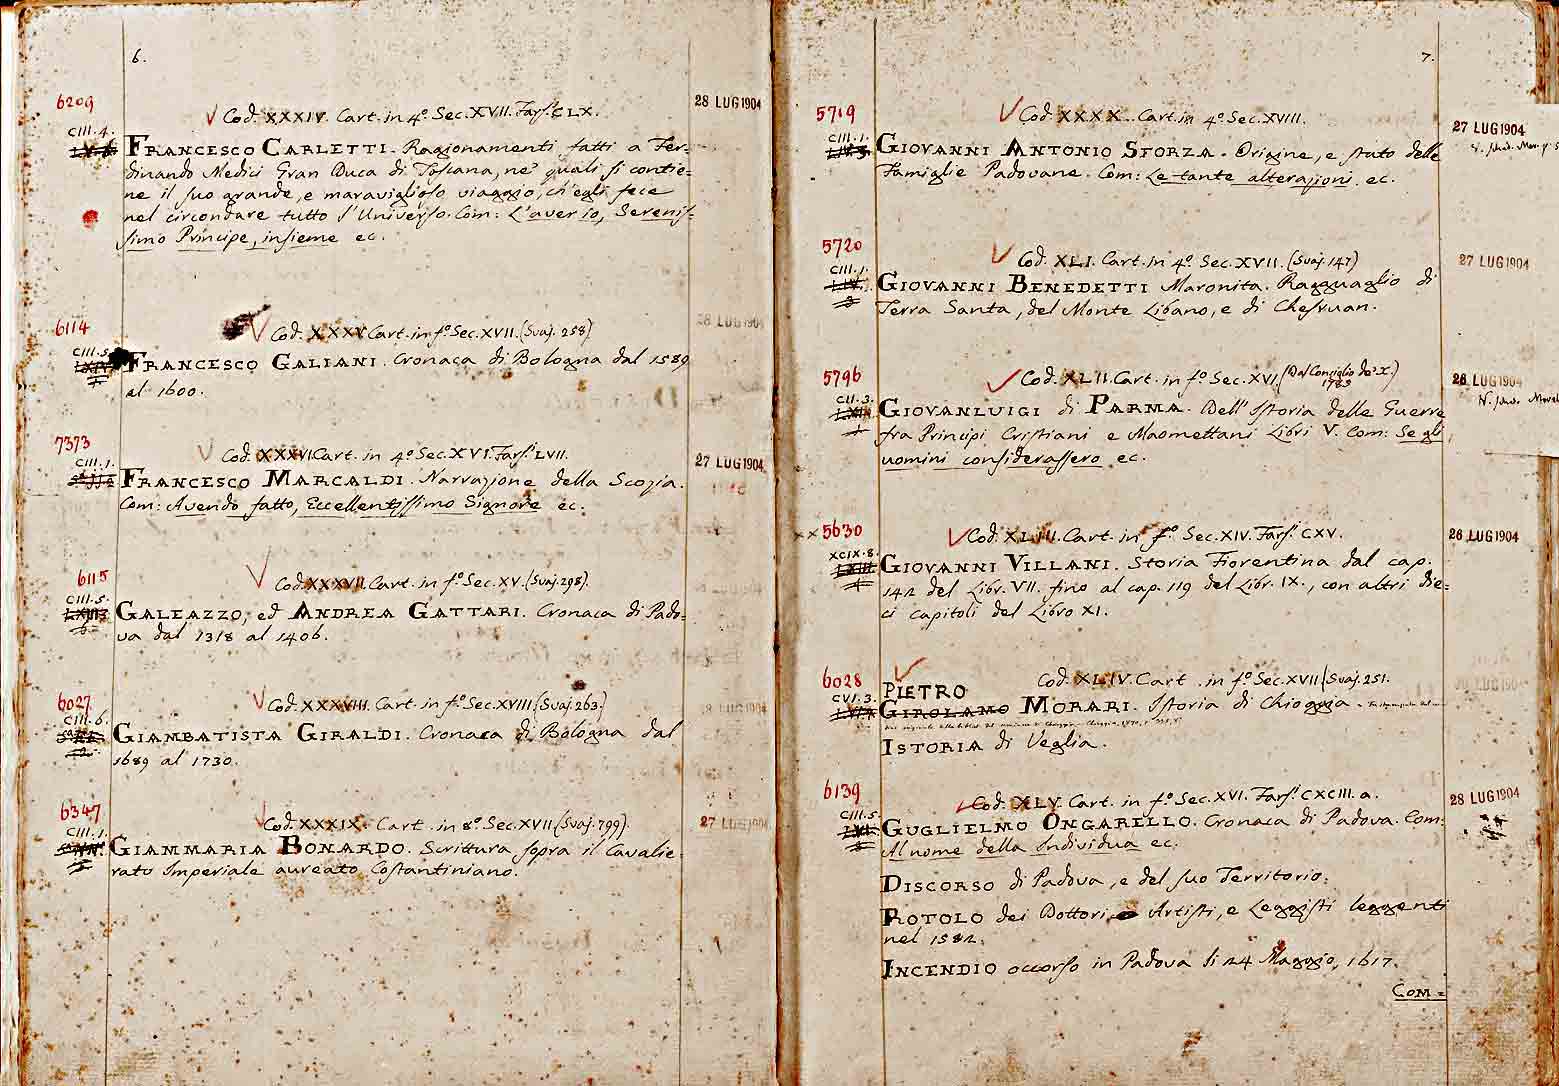 6.
6209
Cod. XXXIV. Cart. in 4º. Sec. XVII. Farſ. CLX.
28 LUG 1904
CIII. 4.
FRANCESCO CARLETTI. Ragionamenti fatti a Fer=
dinando Medici Gran Duca di Toscana, ne' quali ſi contie=
ne il ſuo grande, e maraviglioſo viaggio, ch'egli fece
nel circondare tutto l'Univerſo. Com: L'aver io, Sereniſ=
ſimo Principe, inſieme ec.
6114
Cod. XXXV. Cart. in fº. Sec. XVII. (Svaj. 258)
28 LUG 1904
CIII. 5.
FRANCESCO GALIANI. Cronaca di Bologna dal 1589
al 1600.
7373
Cod. XXXVI Cart. in 4º. Sec. XVI. Farſ. LVII.
27 LUG 1904
CIII. 1.
FRANCESCO MARCALDI. Narrazione della Scozia.
Com: Avendo fatto, Eccellentiſſimo Signore ec.
6115
Cod. XXXVII. Cart. in fº. Sec. XV. (Svaj. 298).
CIII. 5.
GALEAZZO, ed ANDREA GATTARI. Cronaca di Pado=
va dal 1318 al 1406.
6027
Cod. XXXVIII. Cart. in fº. Sec. XVIII. (Svaj. 263.)
CIII. 6.
GIAMBATISTA GIRALDI. Cronaca di Bologna dal
1689 al 1730.
6347
Cod. XXXIX. Cart. in 8º. Sec. XVII. (Svaj. 799).
27 LUG 1904
CIII. 1.
GIAMMARIA BONARDO. Scrittura ſopra il Cavalie=
rato Imperiale aureato Coſtantiniano.
7.
5719
Cod. XXXX. Cart. in 4º. Sec. XVIII.
27 LUG 1904
CIII. 1.
GIOVANNI ANTONIO SFORZA. Origine, e ſtato delle
Famiglie Padovane. Com: Le tante alterazioni ec.
5720
Cod. XLI. Cart. in 4º. Sec. XVII. (Svaj. 147)
27 LUG 1904
CIII. 1.
GIOVANNI BENEDETTI Maronita. Ragguaglio di
Terra Santa, del Monte Libano, e di Cheſruan.
5796
Cod. XLII. Cart. in fº. Sec. XVI. (Dal Conſiglio de' X.)
1783
28 LUG 1904
CII. 3.
GIOVANLUIGI di PARMA. Dell'Iſtoria delle Guerre
fra Principi Criſtiani e Maomettani Libri V. Com: Se gli
uomini conſideraſſero ec.
xx 5630
Cod. XLIII. Cart. in fº. Sec. XIV. Farſ. CXV.
26 LUG 1904
XCIX. 8.
GIOVANNI VILLANI. Storia Fiorentina dal cap.
142 del Libr. VII. fino al cap. 119 del Libr. IX., con altri die=
ci capitoli del Libro XI.
6028
Cod. XLIV. Cart. in fº. Sec. XVII (Svaj. 251.
CVI. 3.
PIETRO
GIROLAMO MORARI. Iſtoria di Chioggia.
ISTORIA di Veglia.
6139
Cod. XLV. Cart. in fº. Sec. XVI. Farſ. CXCIII. a.
28 LUG 1904
CIII. 5.
GUGLIELMO ONGARELLO. Cronaca di Padova. Com:
Al nome della Individua ec.
DISCORSO di Padova, e del ſuo Territorio.
ROTOLO dei Dottori Artiſti, e Leggiſti leggenti
nel 1582.
INCENDIO occorſo in Padova li 24 Maggio, 1617.
COM=